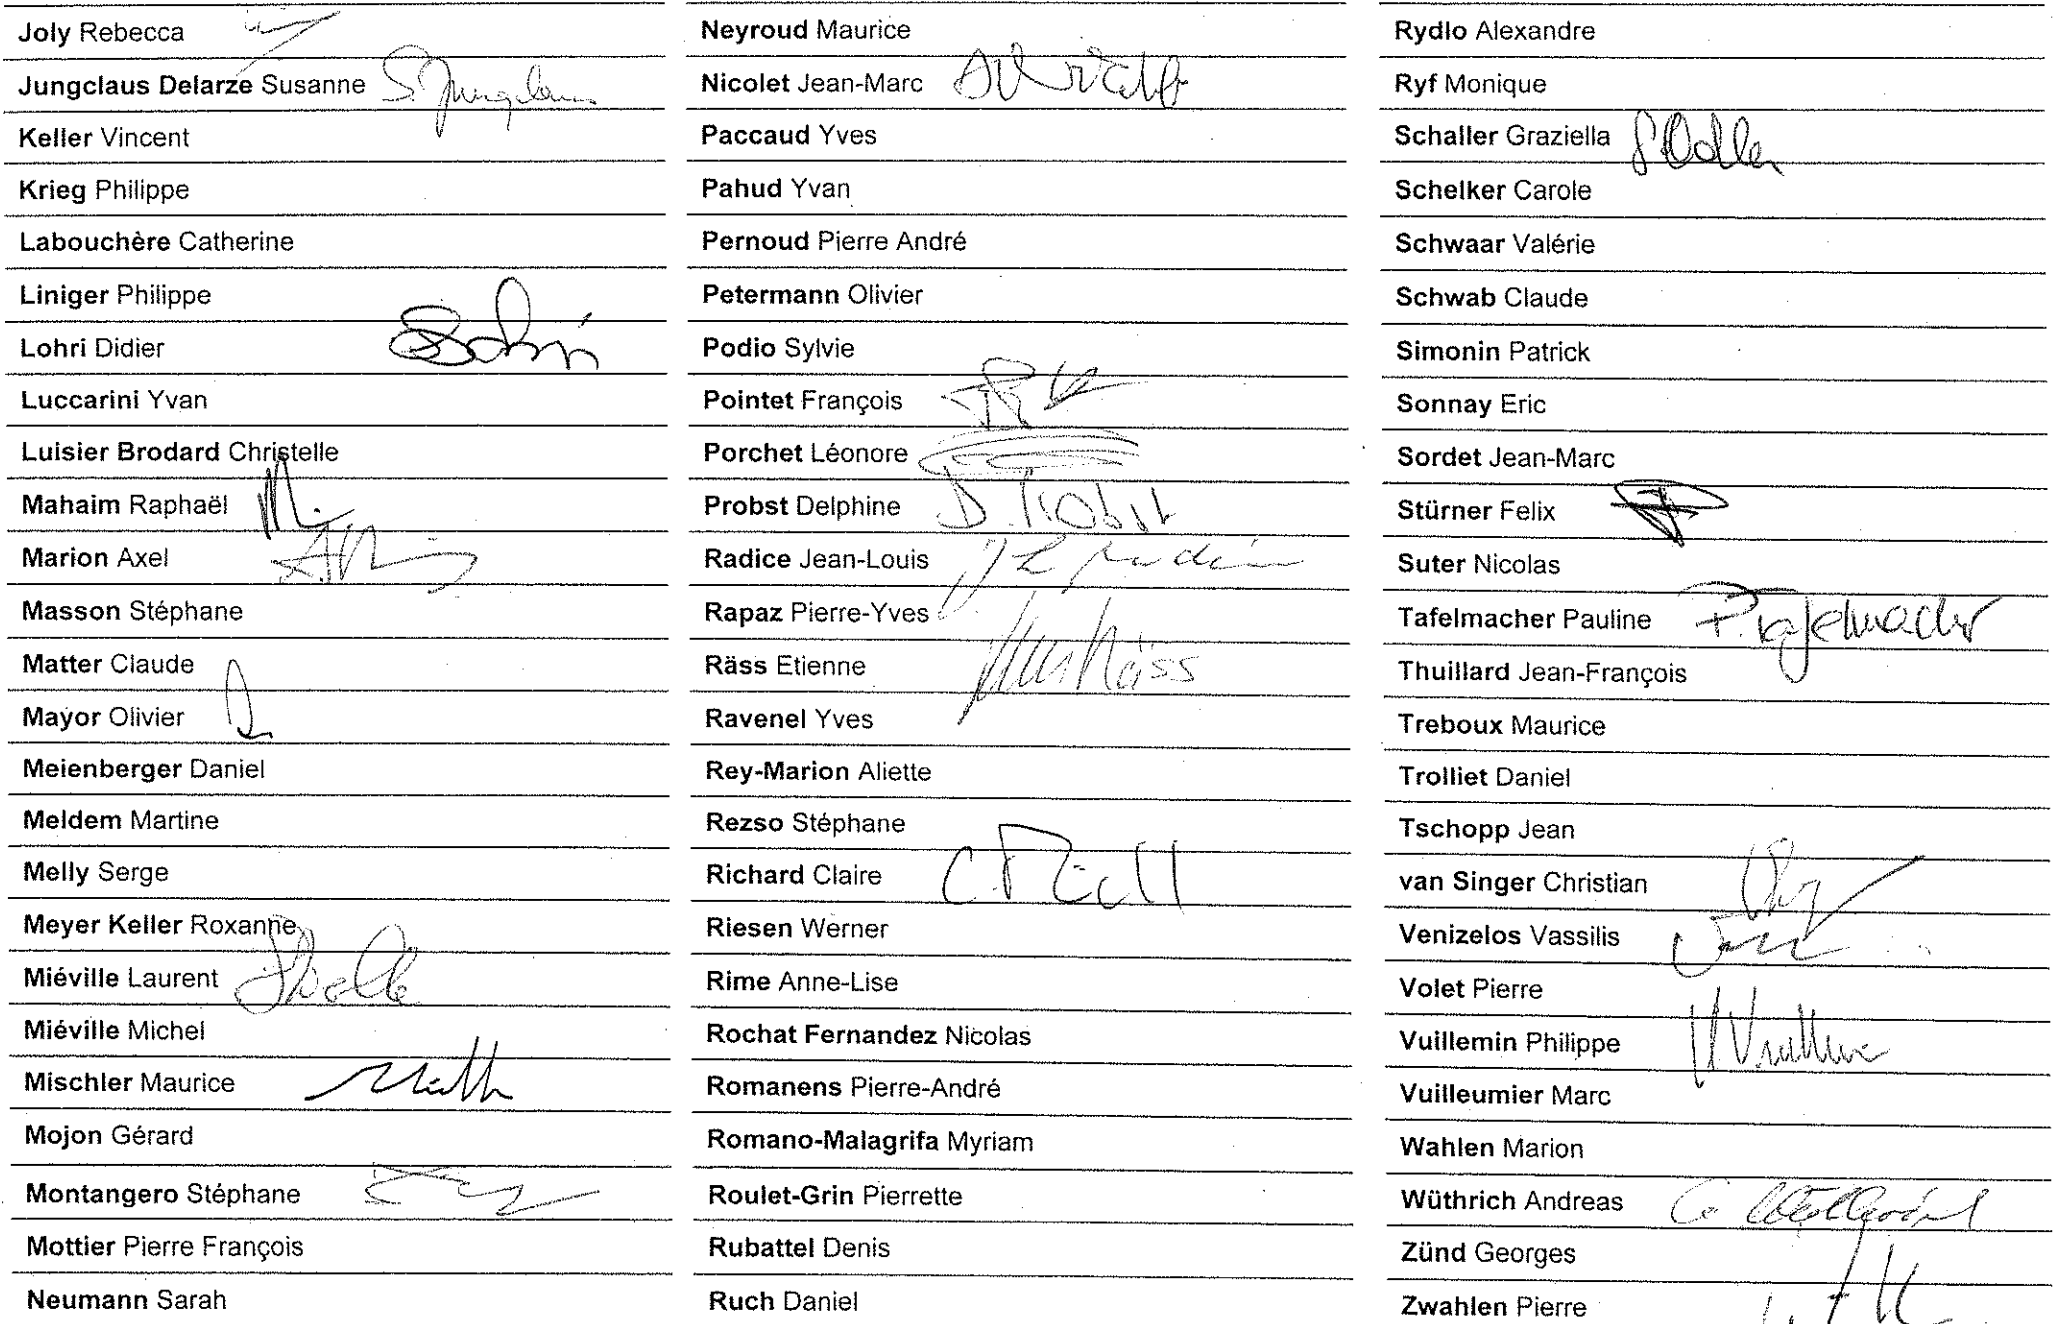 Joly Rebecca
Jungclaus Delarze Susanne S. Jungclaus
Keller Vincent
Krieg Philippe
Labouchère Catherine
Liniger Philippe
Lohri Didier
Luccarini Yvan
Luisier Brodard Christelle
Mahaim Raphaël
Marion Axel
Masson Stéphane
Matter Claude
Mayor Olivier
Meienberger Daniel
Meldem Martine
Melly Serge
Meyer Keller Roxanne
Miéville Laurent
Miéville Michel
Mischler Maurice
Mojon Gérard
Montangero Stéphane
Mottier Pierre François
Neumann Sarah
Neyroud Maurice
Nicolet Jean-Marc
Paccaud Yves
Pahud Yvan
Pernoud Pierre André
Petermann Olivier
Podio Sylvie
Pointet François
Porchet Léonore
Probst Delphine D. Probst
Radice Jean-Louis J L Radice
Rapaz Pierre-Yves
Räss Etienne Räss
Ravenel Yves
Rey-Marion Aliette
Rezso Stéphane
Richard Claire
Riesen Werner
Rime Anne-Lise
Rochat Fernandez Nicolas
Romanens Pierre-André
Romano-Malagrifa Myriam
Roulet-Grin Pierrette
Rubattel Denis
Ruch Daniel
Rydlo Alexandre
Ryf Monique
Schaller Graziella
Schelker Carole
Schwaar Valérie
Schwab Claude
Simonin Patrick
Sonnay Eric
Sordet Jean-Marc
Stürner Felix
Suter Nicolas
Tafelmacher Pauline P. Tafelmacher
Thuillard Jean-François
Treboux Maurice
Trolliet Daniel
Tschopp Jean
van Singer Christian
Venizelos Vassilis
Volet Pierre
Vuillemin Philippe
Vuilleumier Marc
Wahlen Marion
Wüthrich Andreas
Zünd Georges
Zwahlen Pierre